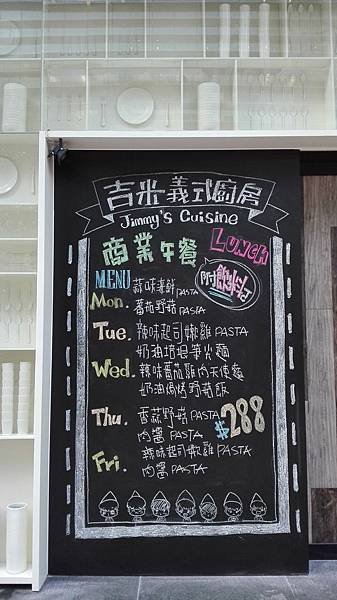 吉米義式廚房
Jimmy's Cuisine
商業午餐 LUNCH
附飲料
MENU
Mon. 蒜味培根PASTA
番茄野菇PASTA
Tue. 辣味起司嫩雞PASTA
奶油培根筆尖麵
Wed. 辣味番茄雞肉天使麵
奶油焗烤野菇飯
Thu. 香蒜野菇PASTA
肉醬PASTA
$288
Fri. 辣味起司嫩雞PASTA
肉醬PASTA